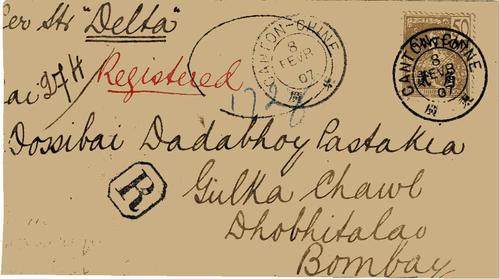 er Str "Delta"
ai 274
Registered
1728
CANTON-CHINE
8
FEVR
07
廣 東
50
CANTON-CHINE
8
FEVR
07
廣 東
Dossibai Dadabhoy Pastakia
R
Gulka Chawl
Dhobhitalao
Bombay